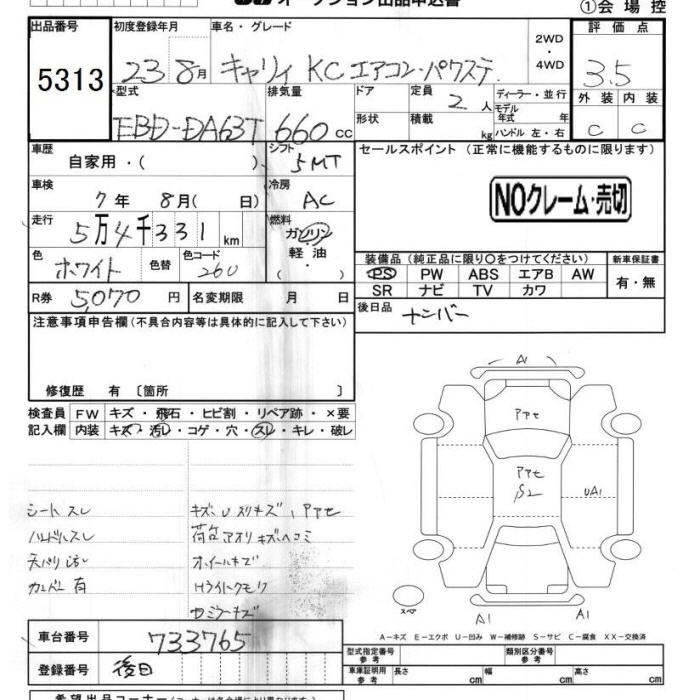 オークション出品申込書
①会場控
出品番号
5313
初度登録年月
車名・グレード
23 8月 キャリィ KC エアコン・パワステ
2WD
・
4WD
評価点
3.5
外装 内装
C C
型式
EBD-DA63T
排気量
660 cc
ドア
形状
定員
2人
積載
kg
ディーラー・並行
モデル年式 年
ハンドル 左・右
車歴
自家用・( )
シフト
5MT
セールスポイント (正常に機能するものに限ります)
NOクレーム・売切
車検
7年 8月( 日)
冷房
AC
走行
5万4千331km
燃料
ガソリン
軽油
( ・ )
色
ホワイト
色替
色コード
260
装備品(純正品に限り○をつけてください)
新車保証書
PS PW ABS エアB AW
SR ナビ TV カワ
有・無
R券 5,070円
名変期限 月 日
後日品
ナンバー
注意事項申告欄(不具合内容等は具体的に記入して下さい)
修復歴 有〔箇所 〕
検査員
記入欄
FW キズ・飛石・ヒビ割・リペア跡・×要
内装 キズ・汚レ・コゲ・穴・スレ・キレ・破レ
シートスレ
ハンドルスレ
天バリ汚レ
カビ 有
キズ、U スリキズ、PPセ
荷台アオリ キズヘコミ
ホイールキズ
Hライトクモリ
A1
PPセ
PPセ
S2
UA1
スペア
A1
A1
A-キズ E-エクボ U-凹み W-補修跡 S-サビ C-腐食 XX-交換済
車台番号
733765
登録番号
後日
型式指定番号
参考
類別区分番号
参考
車庫証明用
参考
長さ cm
幅 cm
高さ cm
希望出品コーナー